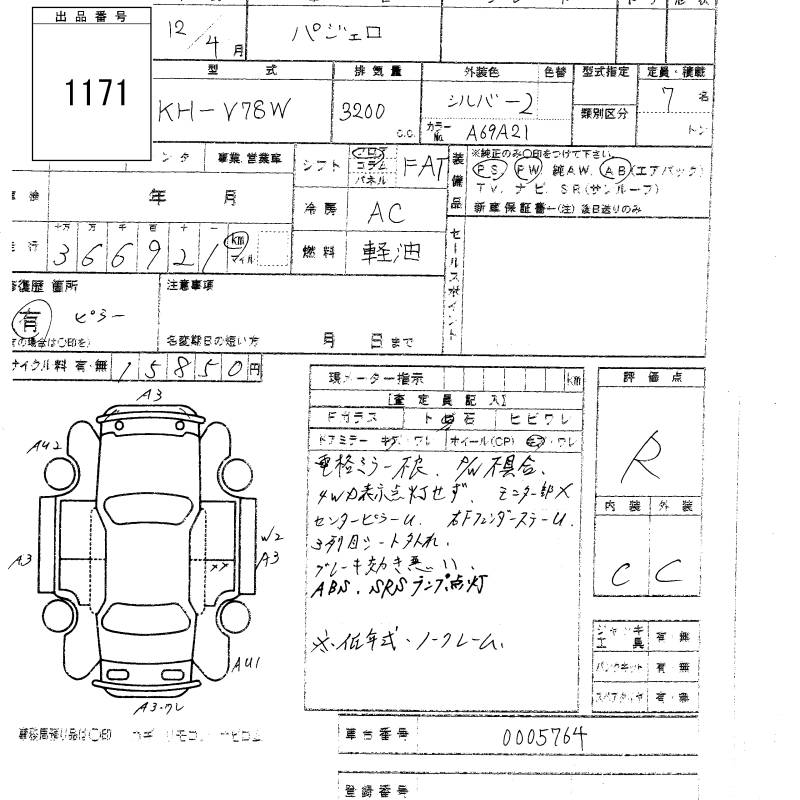 出品番号
1171
12/4月
パジェロ
型式 排気量 外装色 色替 型式指定 定員・積載
KH-V78W 3200 C.C. シルバー2 7名
カラーNo. A69A21 類別区分 トン
事業、営業車
シフト フロア コラム パネル FAT
装備品 ※純正のみ〇印をつけて下さい
PS PW 純AW. AB(エアバック)
TV. ナビ. SR(サンルーフ)
新車保証書―(注)後日送りのみ
車検 年 月
冷房 AC
走行 十万 万 千 百 十 一
366921 km マイル
燃料 軽油
セールスポイント
修復歴 箇所
有 ピラー
注意事項
名変期日の短い方 月 日まで
リサイクル料 有・無 15850円
現メーター指示 km
[査定員記入]
Fガラス ト飛石 ヒビワレ
ドアミラー キズ・ワレ ホイール(CP) キズ・ワレ
電格ミラー不良. P/W不具合.
4WD表示点灯せず. モニター部X
センターピラーU. 右FフェンダーステーU.
3列目シート外れ.
ブレーキ効き悪い.
ABS. SRSランプ点灯
※. 低年式・ノークレーム.
評価点
R
内装 外装
C C
ジャッキ 工具 有・無
パンクキット 有・無
スペアタイヤ 有・無
A3
AU2
A3
W2
A3
XX
AU1
A3・ワレ
車台番号 0005764
登録番号